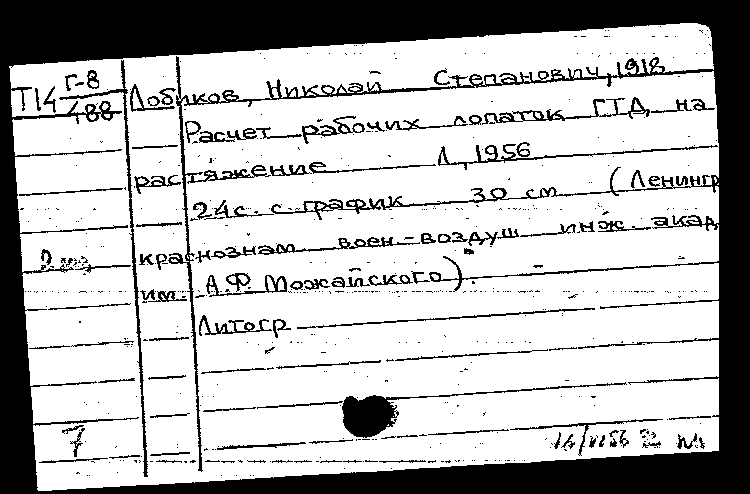 Т14 Г-8/488
Лобиков, Николай Степанович, 1918
Расчет рабочих лопаток ГТД на
растяжение Л, 1956
24с. с график 30 см (Ленингр
краснознам воен-воздуш инж. акад
им. А.Ф Можайского).
2 экз
Литогр
7